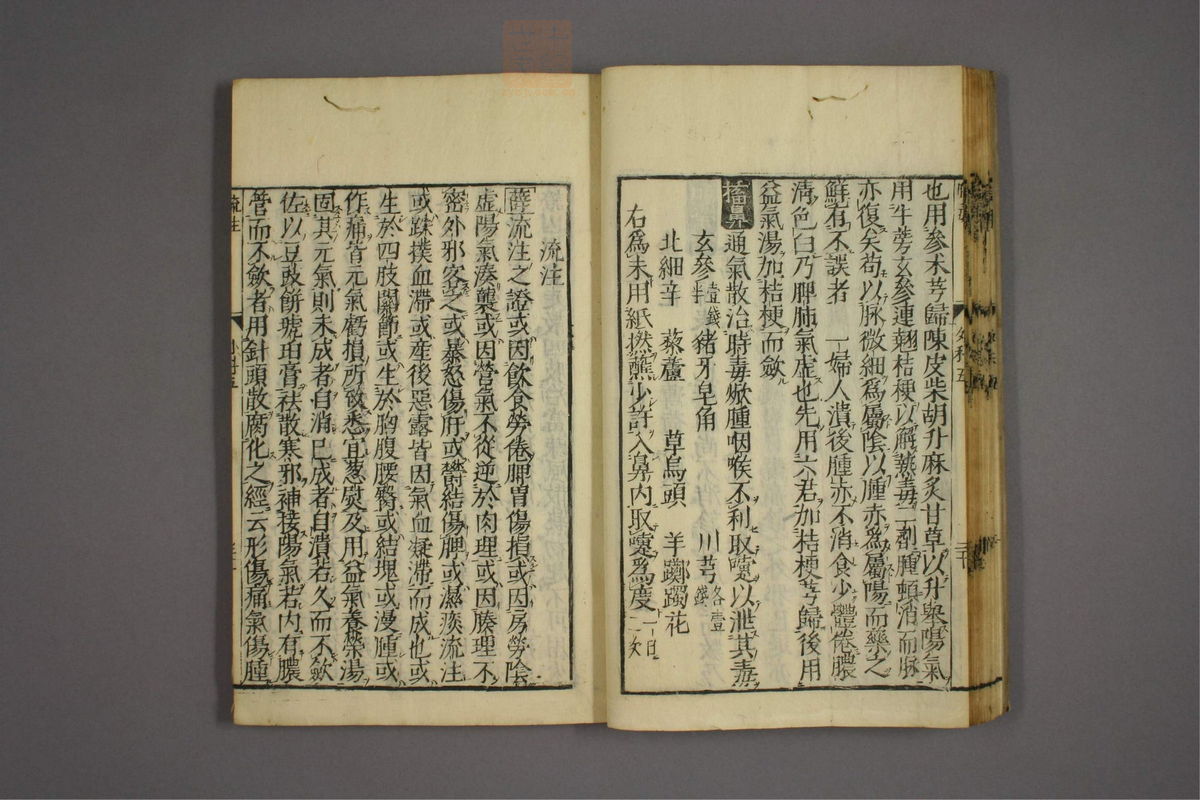 也用參朮芎歸陳皮柴胡升麻炙甘草以升舉陽氣
用牛蒡玄參連翹桔梗以解熱毒二劑腫頓消而脉
亦復矣苟以脉微細爲屬陰以腫赤爲屬陽而藥之
鮮有不誤者 一婦人潰後腫赤不消食少體倦膿
淸色白乃脾肺氣虛也先用六君加桔梗芎歸後用
益氣湯加桔梗而斂
㗜鼻通氣散治時毒焮腫咽喉不利取嚏以泄其毒
玄參壹錢半 猪牙皂角 川芎各壹錢
北細辛 藜蘆 草烏頭 羊躑躅花
右爲末用紙撚蘸少許入鼻内取嚏爲度一日二次
流注
薛流注之證或因飮食勞倦脾胃傷損或因房勞陰
虛陽氣湊襲或因營氣不從逆於肉理或因腠理不
密外邪客之或暴怒傷肝或鬱結傷脾或濕痰流注
或跌撲血滯或產後惡露皆因氣血凝滯而成也或
生於四肢關節或生於胸腹腰臀或結塊或漫腫或
作痛皆元氣虧損所致悉宜葱熨及用益氣養榮湯
固其元氣則未成者自消已成者自潰若久而不斂
佐以豆豉餅琥珀膏祛散寒邪補接陽氣若内有膿
管而不斂者用針頭散腐化之經云形傷痛氣傷腫
流注